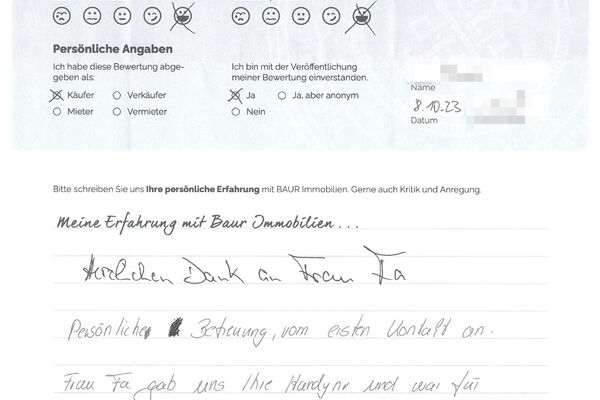 Persönliche Angaben
Ich habe diese Bewertung abge-
geben als:
Käufer
Verkäufer
Mieter
Vermieter
Ich bin mit der Veröffentlichung
meiner Bewertung einverstanden.
Ja
Ja, aber anonym
Nein
Name
8.10.23
Datum
Bitte schreiben Sie uns Ihre persönliche Erfahrung mit BAUR Immobilien. Gerne auch Kritik und Anregung.
Meine Erfahrung mit Baur Immobilien...
Herzlichen Dank an Frau Fa
Persönliche Betreuung, vom ersten Kontakt an.
Frau Fa gab uns Ihre Handynr und war für